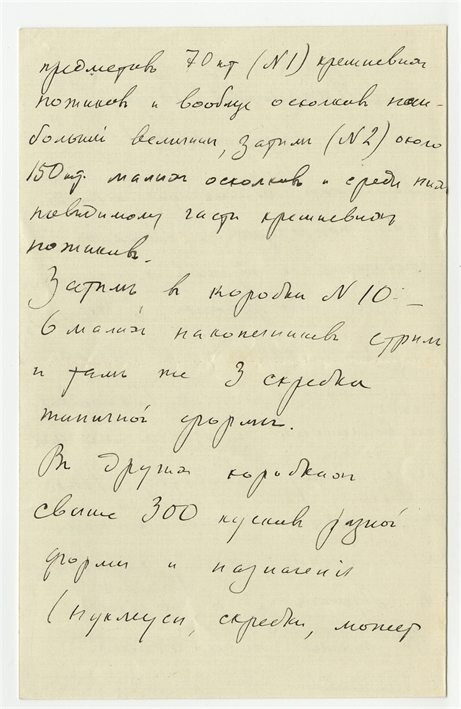 предметовъ 70 шт (N1) кремневыхъ
ножиковъ и вообще осколковъ наи-
большей величины, затѣмъ (N2) около
150 шт. малыхъ осколковъ и среди нихъ
повидимому части кремневыхъ
ножиковъ.
Затѣмъ въ коробкѣ N 10: —
6 малыхъ наконечниковъ стрѣлъ
и тамъ же 3 скребка
типичной формы.
Въ другихъ коробкахъ
свыше 300 кусковъ разной
формы и назначенія
(нуклеусы, скребки, можетъ